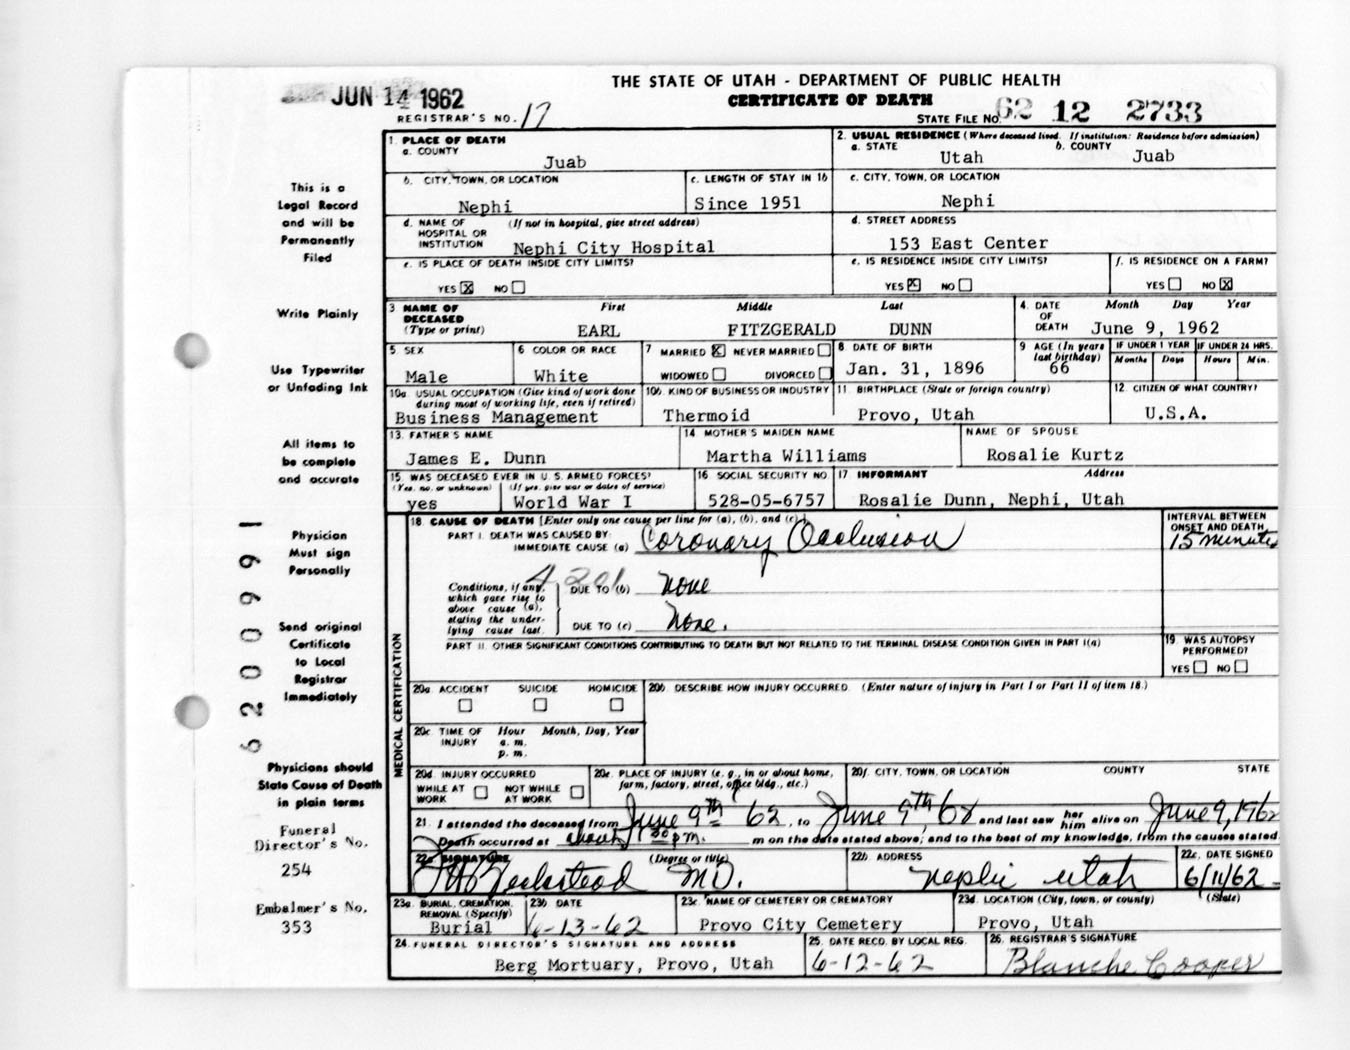 THE STATE OF UTAH - DEPARTMENT OF PUBLIC HEALTH
CERTIFICATE OF DEATH
JUN 14 1962
REGISTRAR'S NO. 17
STATE FILE NO. 62 12 2733
1. PLACE OF DEATH
a. COUNTY
Juab
2. USUAL RESIDENCE (Where deceased lived. If institution: Residence before admission)
a. STATE b. COUNTY
Utah Juab
b. CITY, TOWN, OR LOCATION
Nephi
c. LENGTH OF STAY IN 1b
Since 1951
c. CITY, TOWN, OR LOCATION
Nephi
d. NAME OF HOSPITAL OR INSTITUTION (If not in hospital, give street address)
Nephi City Hospital
d. STREET ADDRESS
153 East Center
e. IS PLACE OF DEATH INSIDE CITY LIMITS?
YES X NO
e. IS RESIDENCE INSIDE CITY LIMITS?
YES X NO
f. IS RESIDENCE ON A FARM?
YES NO X
3 NAME OF DECEASED (Type or print)
First Middle Last
EARL FITZGERALD DUNN
4. DATE OF DEATH Month Day Year
June 9, 1962
5 SEX
Male
6 COLOR OR RACE
White
7 MARRIED X NEVER MARRIED
WIDOWED DIVORCED
8 DATE OF BIRTH
Jan. 31, 1896
9 AGE (In years last birthday)
66
IF UNDER 1 YEAR IF UNDER 24 HRS.
Months Days Hours Min.
10a. USUAL OCCUPATION (Give kind of work done during most of working life, even if retired)
Business Management
10b. KIND OF BUSINESS OR INDUSTRY
Thermoid
11. BIRTHPLACE (State or foreign country)
Provo, Utah
12. CITIZEN OF WHAT COUNTRY?
U.S.A.
13. FATHER'S NAME
James E. Dunn
14 MOTHER'S MAIDEN NAME
Martha Williams
NAME OF SPOUSE
Rosalie Kurtz
15. WAS DECEASED EVER IN U. S. ARMED FORCES?
(Yes, no, or unknown) (If yes, give war or dates of service)
yes World War I
16 SOCIAL SECURITY NO.
528-05-6757
17 INFORMANT Address
Rosalie Dunn, Nephi, Utah
MEDICAL CERTIFICATION
18. CAUSE OF DEATH [Enter only one cause per line for (a), (b), and (c).]
PART I. DEATH WAS CAUSED BY:
IMMEDIATE CAUSE (a) Coronary Occlusion
INTERVAL BETWEEN ONSET AND DEATH
15 minutes
4201
Conditions, if any, which gave rise to above cause (a), stating the underlying cause last.
DUE TO (b) none
DUE TO (c) None.
PART II. OTHER SIGNIFICANT CONDITIONS CONTRIBUTING TO DEATH BUT NOT RELATED TO THE TERMINAL DISEASE CONDITION GIVEN IN PART I(a)
19. WAS AUTOPSY PERFORMED?
YES NO
20a. ACCIDENT SUICIDE HOMICIDE
20b. DESCRIBE HOW INJURY OCCURRED. (Enter nature of injury in Part I or Part II of item 18.)
20c. TIME OF INJURY Hour Month, Day, Year
a. m.
p. m.
20d. INJURY OCCURRED
WHILE AT WORK NOT WHILE AT WORK
20e. PLACE OF INJURY (e. g., in or about home, farm, factory, street, office bldg., etc.)
20f. CITY, TOWN, OR LOCATION COUNTY STATE
21. I attended the deceased from June 9th 62, to June 9th, 62 and last saw her him alive on June 9, 1962
Death occurred at about 1 30 p m. m on the date stated above; and to the best of my knowledge, from the causes stated.
22a SIGNATURE (Degree or title)
M.D.
22b. ADDRESS
Nephi Utah
22c. DATE SIGNED
6/11/62
23a. BURIAL, CREMATION, REMOVAL (Specify)
Burial
23b. DATE
6-13-62
23c. NAME OF CEMETERY OR CREMATORY
Provo City Cemetery
23d. LOCATION (City, town, or county) (State)
Provo, Utah
24. FUNERAL DIRECTOR'S SIGNATURE AND ADDRESS
Berg Mortuary, Provo, Utah
25. DATE RECD. BY LOCAL REG.
6-12-62
26. REGISTRAR'S SIGNATURE
Blanche Cooper
This is a
Legal Record
and will be
Permanently
Filed
Write Plainly
Use Typewriter
or Unfading Ink
All items to
be complete
and accurate
Physician
Must sign
Personally
Send original
Certificate
to Local
Registrar
Immediately
Physicians should
State Cause of Death
in plain terms
Funeral
Director's No.
254
Embalmer's No.
353
6200991